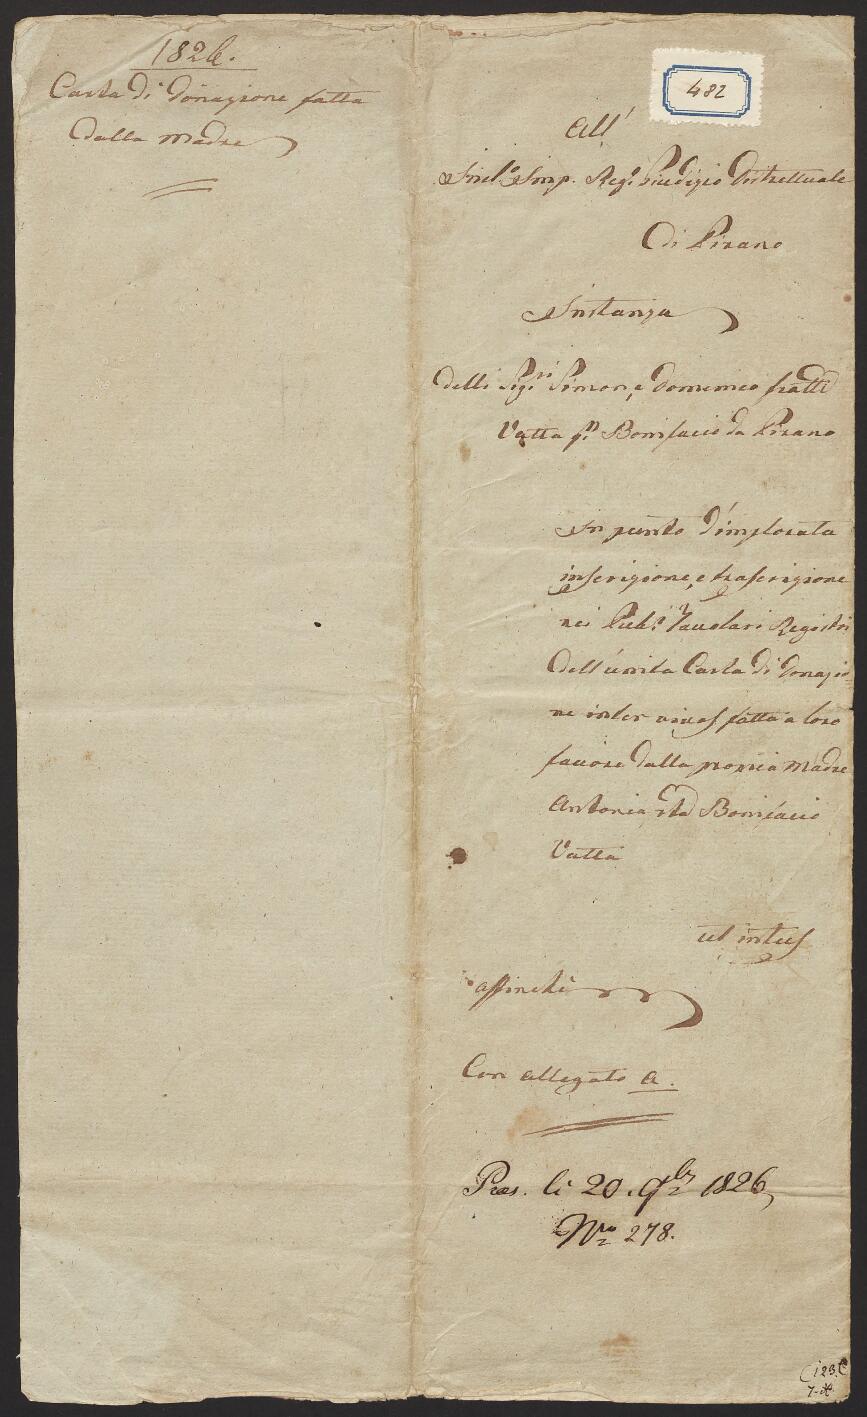 1826.
Carta di donazione fatta
dalla madre
482
All'
Incl.o Imp. Reg.o Giudizio Distrettuale
Di Pirano
Instanza
delli Sig.ri Simon, e Domenico fratelli
Vatta q.m Bonifacio da Pirano
In punto d'implorata
inscrizione, e trascrizione
nei Pub.i Tavolari Registri
dell'unita Carta di donazio-
ne inter vivos fatta a loro
favore dalla propria Madre
Antonia Bonifacio
Vatta
ut intus
affinchè
Con allegato A.
Pres. li 20. 9br 1826,
Nro 278.